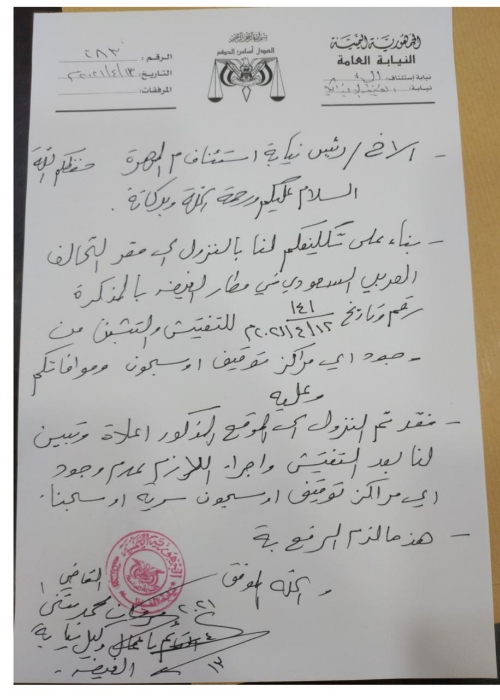 الجمهورية اليمنية
النيابة العامة
نيابة إستئناف:
نيابة:
العدل أساس الحكم
الرقم: ٢٨٣
التاريخ: ٢٠٢١/٤/١٣
المرفقات:
- الاخ / رئيس نيابة استئناف م المهرة حفظكم الله
السلام عليكم ورحمة الله وبركاتة .
- بناء على تكليفكم لنا بالنزول الى مقر التحالف
العربي السعودي في مطار الغيضه بالمذكرة
رقم وتاريخ ١٤١ / ٢٠٢١/٤/١٢م للتفتيش والتثبت من
وجود اي مراكز توقيف او سجون وموافاتكم
وعليه
- فقد تم النزول الى الموقع المذكور اعلاة وتبين
لنا بعد التفتيش واجراء اللازم عدم وجود
اي مراكز توقيف او سجون سرية او سجنا .
- هذا مالزم الرفع بة
والله الموفق
القاضي /
محمد مثنى
٢٠٢١
القائم باعمال وكيل نيابة
٤
١٣
الغيضه .